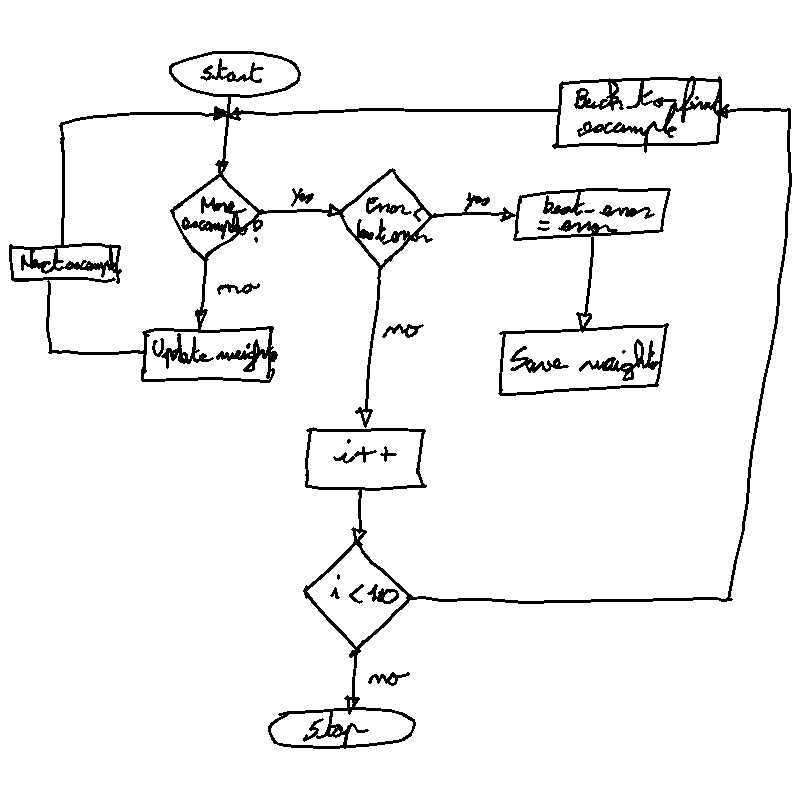 start
Back to first
example
More
examples?
yes
Error <
best error
yes
best_error
= error
Next example
no
Update weights
no
Save weights
i++
i < 10
no
stop